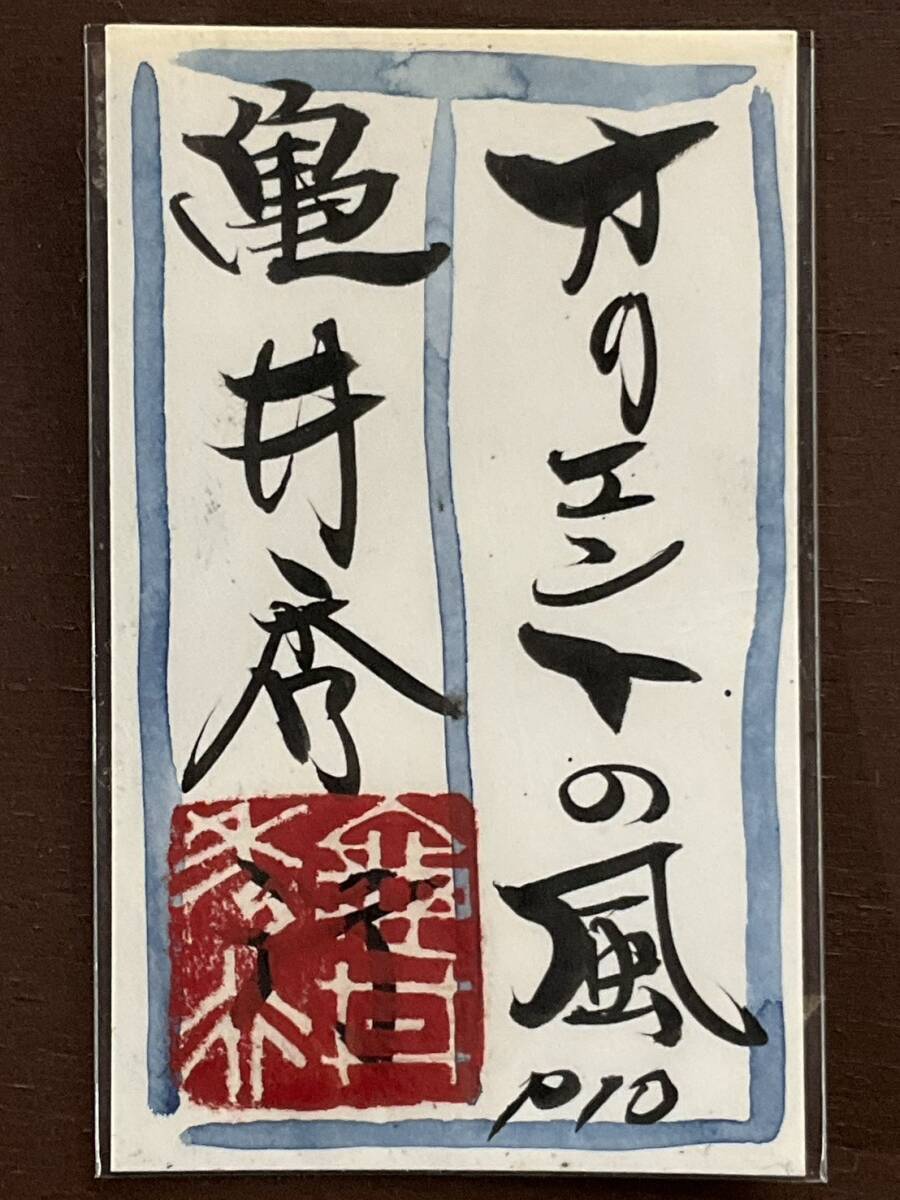 オリエントの風
P10
亀井秀